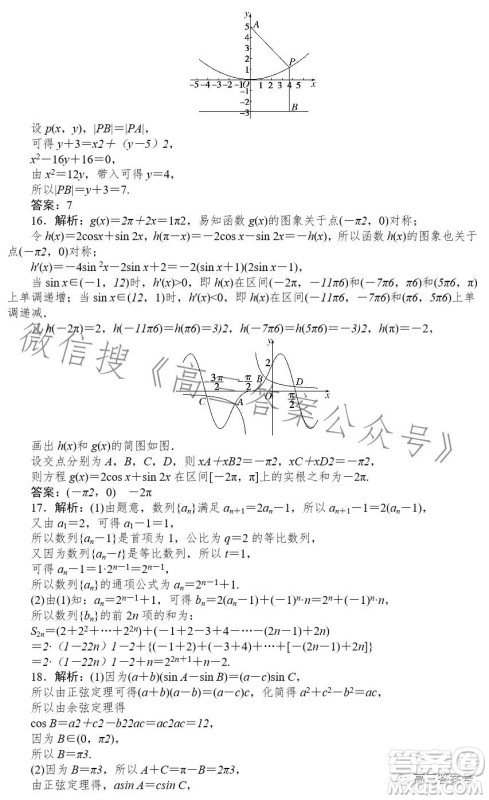 y
A
5
4
3
2
1
P
-5 -4 -3 -2 -1 O 1 2 3 4 5 x
-1
-2
-3
B
设 p(x，y)，|PB|=|PA|，
可得 y+3=x2+（y-5）2，
x²-16y+16=0，
由 x²=12y，带入可得 y=4，
所以|PB|=y+3=7.
答案：7
16．解析：g(x)=2π+2x=1π2，易知函数 g(x)的图象关于点(-π2，0)对称；
令 h(x)=2cosx+sin 2x，h(π-x)=-2cos x-sin 2x=-h(x)，所以函数 h(x)的图象也关于
点(-π2，0)对称；
h′(x)=-4sin ²x-2sin x+2=-2(sin x+1)(2sin x-1)，
当 sin x∈(-1，12)时，h′(x)>0，即 h(x)在区间(-2π，-11π6)和(-7π6，π6)和(5π6，π)
上单调递增；当 sin x∈(12，1)时，h′(x)<0，即 h(x)在区间(-11π6，-7π6)和(π6，5π6)上单
调递减．
且 h(-2π)=2，h(-11π6)=h(π6)=3)2，h(-7π6)=h(5π6)=-3)2，h(π)=-2，
y
2
3π
2
π
2
B
D
C
A
O
π
2
x
画出 h(x)和 g(x)的简图如图．
设交点分别为 A，B，C，D，则 xA+xB2=-π2，xC+xD2=-π2，
则方程 g(x)=2cos x+sin 2x 在区间[-2π，π]上的实根之和为-2π.
答案：(-π2，0) -2π
17．解析：(1)由题意，数列{aₙ}满足 aₙ₊₁=2aₙ-1，所以 aₙ₊₁-1=2(aₙ-1)，
又由 a₁=2，可得 a₁-1=1，
所以数列{aₙ-1}是首项为 1，公比为 q=2 的等比数列，
又因为数列{aₙ-t}是等比数列，所以 t=1，
可得 aₙ-1=1·2ⁿ⁻¹=2ⁿ⁻¹，
所以数列{aₙ}的通项公式为 aₙ=2ⁿ⁻¹+1.
(2)由(1)知：aₙ=2ⁿ⁻¹+1，可得 bₙ=2(aₙ-1)+(-1)ⁿ·n=2ⁿ+(-1)ⁿ·n，
所以数列{bₙ}的前 2n 项的和为：
S₂ₙ=(2+2²+…+2²ⁿ)+(-1+2-3+4-…-(2n-1)+2n)
=2·（1-22n）1-2+{(-1+2)+(-3+4)+…+[-(2n-1)+2n]}
=2·（1-22n）1-2+n=2²ⁿ⁺¹+n-2.
18．解析：(1)因为(a+b)(sin A-sin B)=(a-c)sin C，
所以由正弦定理可得(a+b)(a-b)=(a-c)c，化简得 a²+c²-b²=ac，
所以由余弦定理得
cos B=a2+c2-b22ac=ac2ac=12，
因为 B∈(0，π2)，
所以 B=π3.
(2)因为 B=π3，所以 A+C=π-B=2π3，
由正弦定理得，asin A=csin C，
微信搜《高三答案公众号》
答案圈